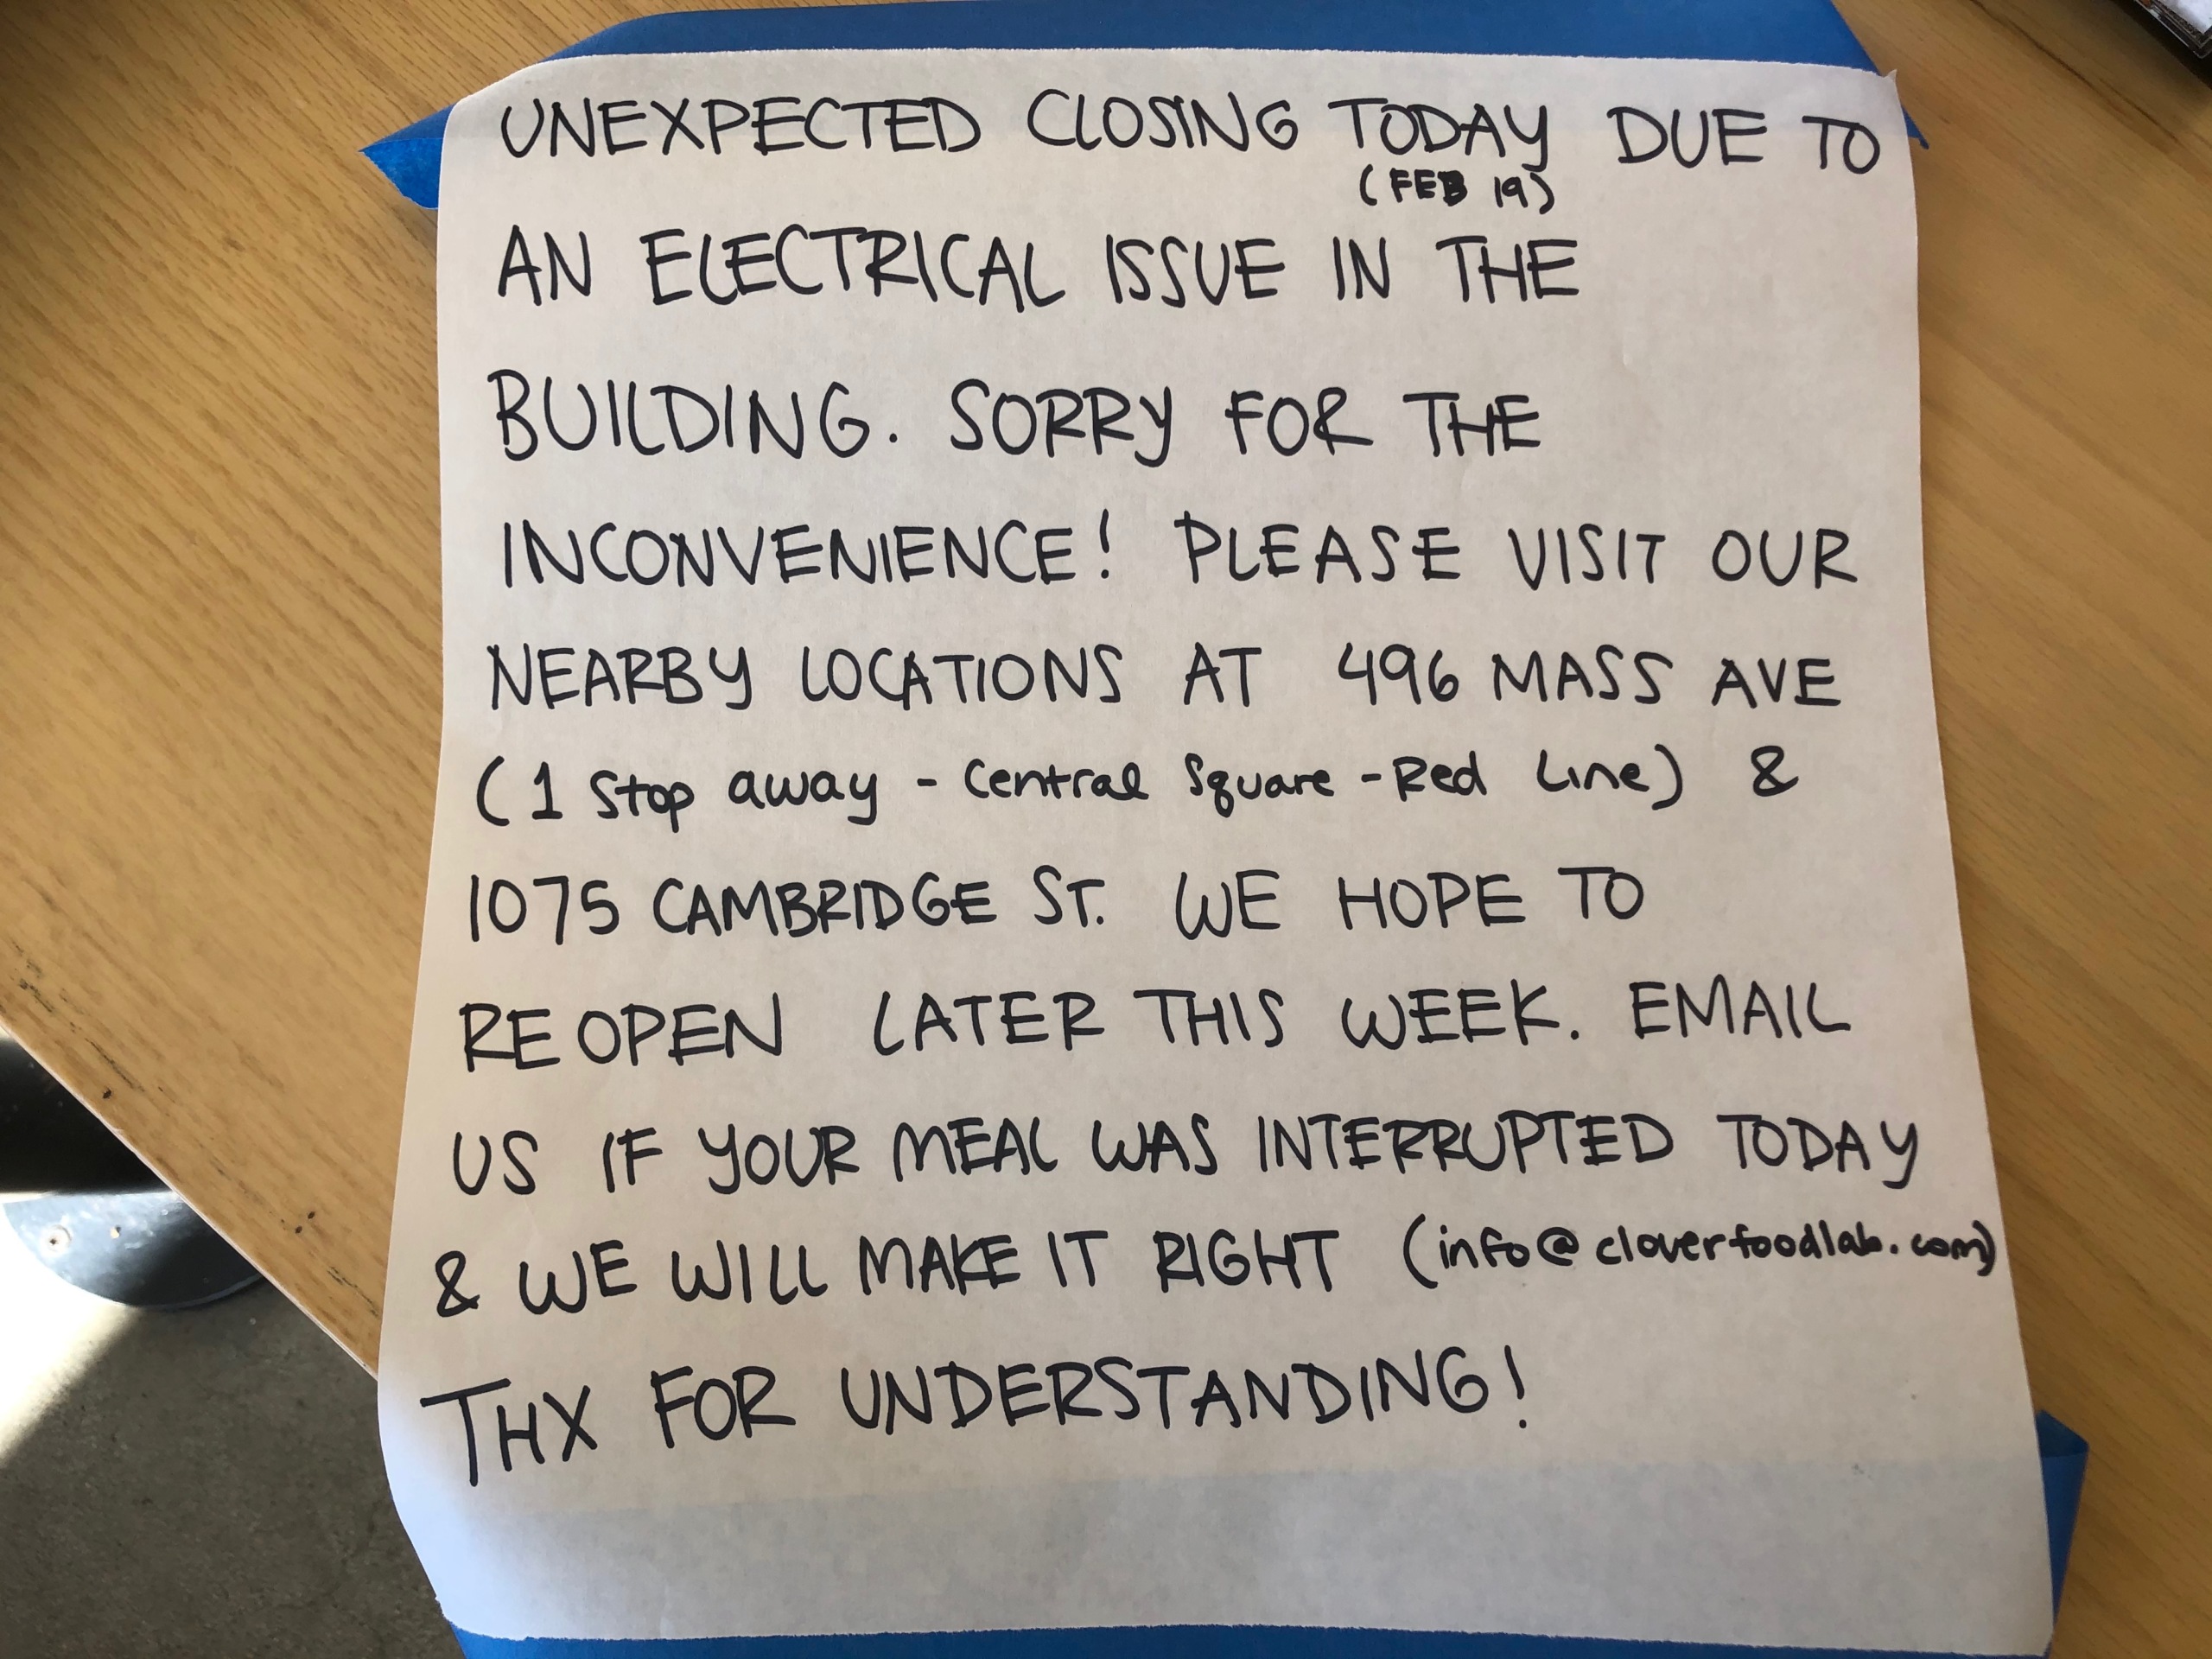 UNEXPECTED CLOSING TODAY DUE TO
(FEB 19)
AN ELECTRICAL ISSUE IN THE
BUILDING. SORRY FOR THE
INCONVENIENCE! PLEASE VISIT OUR
NEARBY LOCATIONS AT 496 MASS AVE
(1 Stop away - Central Square - Red Line) &
1075 CAMBRIDGE ST. WE HOPE TO
REOPEN LATER THIS WEEK. EMAIL
US IF YOUR MEAL WAS INTERRUPTED TODAY
& WE WILL MAKE IT RIGHT (info@cloverfoodlab.com)
THX FOR UNDERSTANDING!